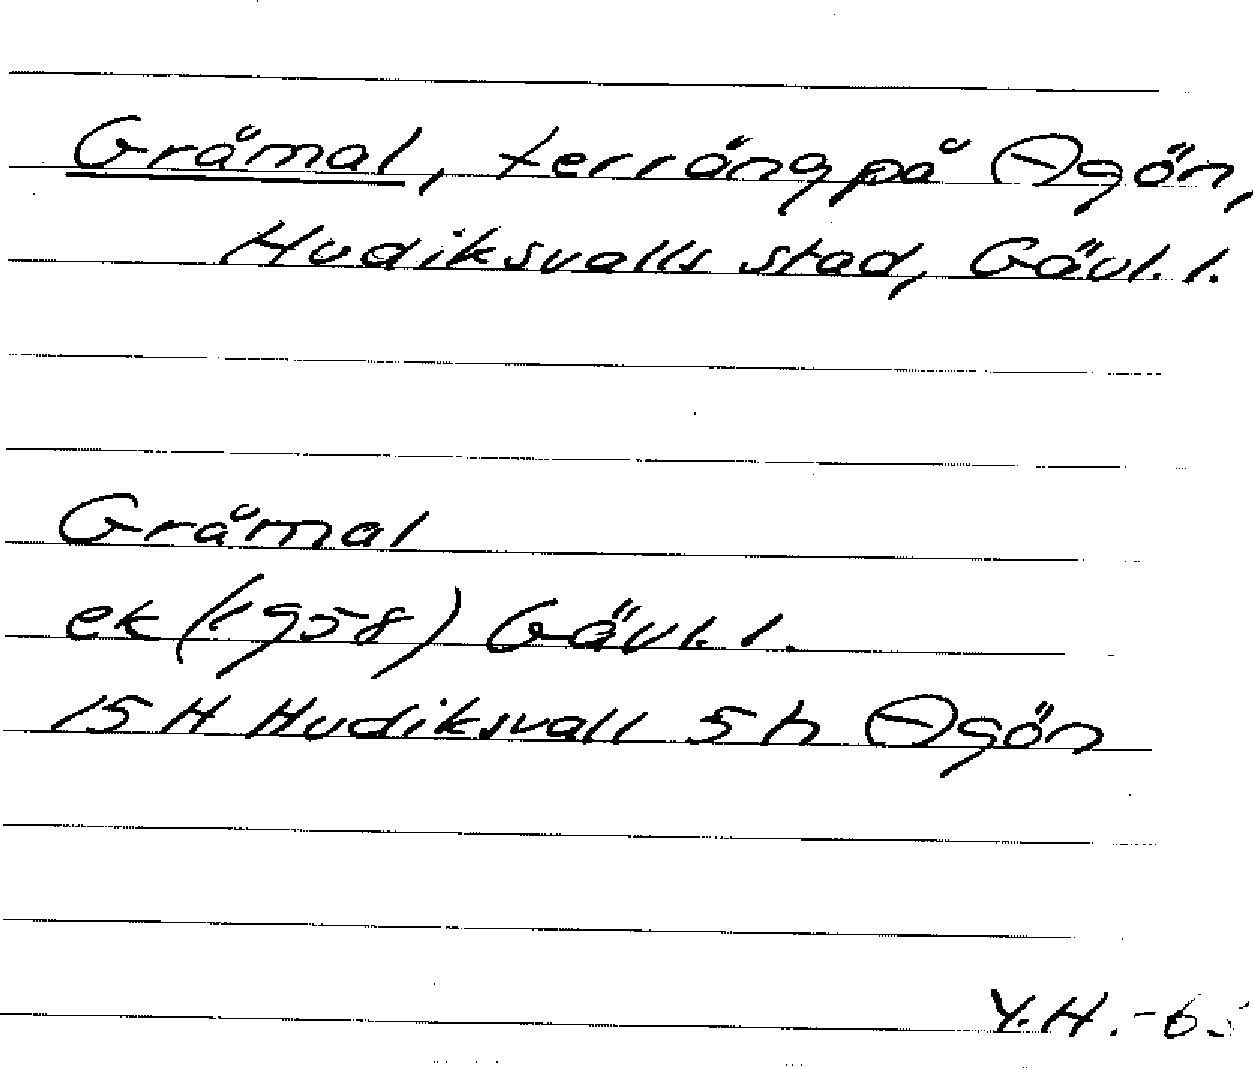 Gråmal, terräng på Agön,
Hudiksvalls stad, Gävl. l.
Gråmal
ek (1958) Gävl. l.
15 H Hudiksvall 5 h Agön
Y.H.-65